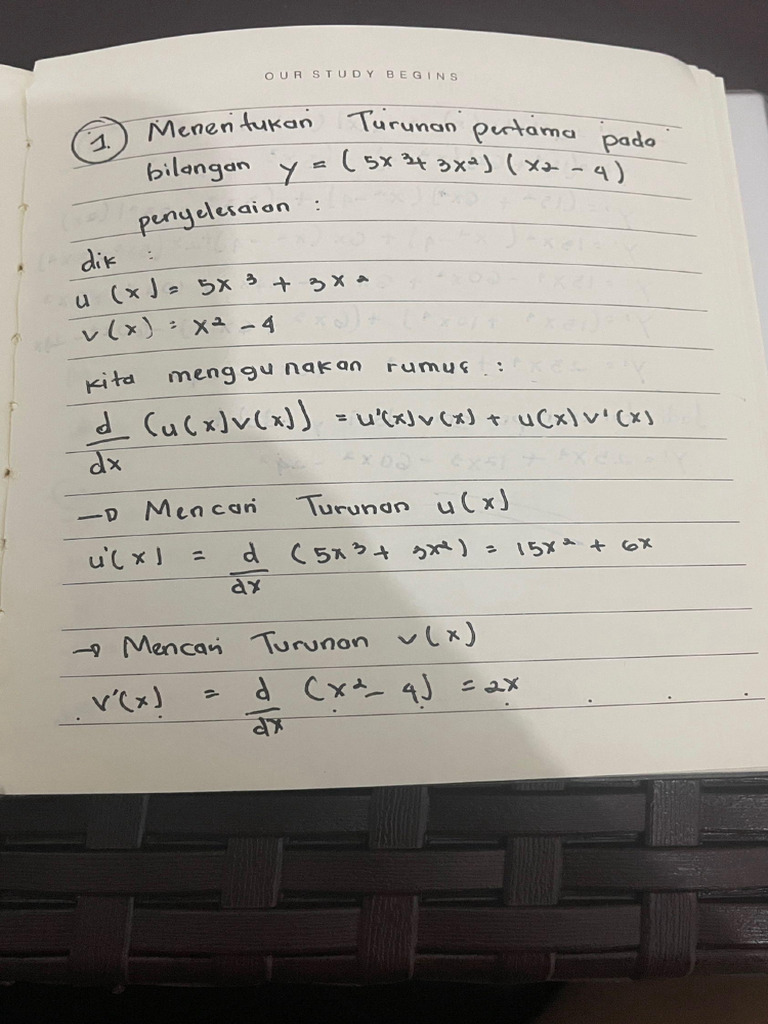 OUR STUDY BEGINS
1. Menentukan Turunan pertama pada
bilangan y = (5x³+ 3x²) (x2 - 4)
penyelesaian :
dik :
u (x) = 5x³ + 3x²
v(x) = x² - 4
kita menggunakan rumus :
d/dx (u(x)v(x)) = u'(x)v(x) + u(x)v'(x)
→ Mencari Turunan u(x)
u'(x) = d/dx (5x³ + 3x²) = 15x² + 6x
→ Mencari Turunan v(x)
v'(x) = d/dx (x² - 4) = 2x